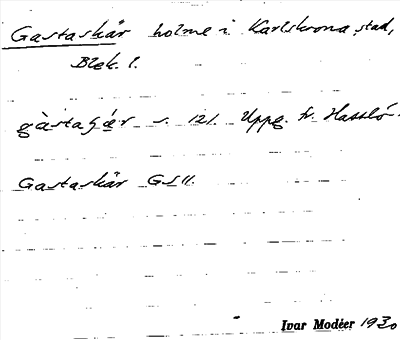 Gastaskär holme i Karlskrona stad,
Blek. l.
s. 121. Uppg. fr. Hasslö.
Gastaskär GS II.
Ivar Modéer 1930